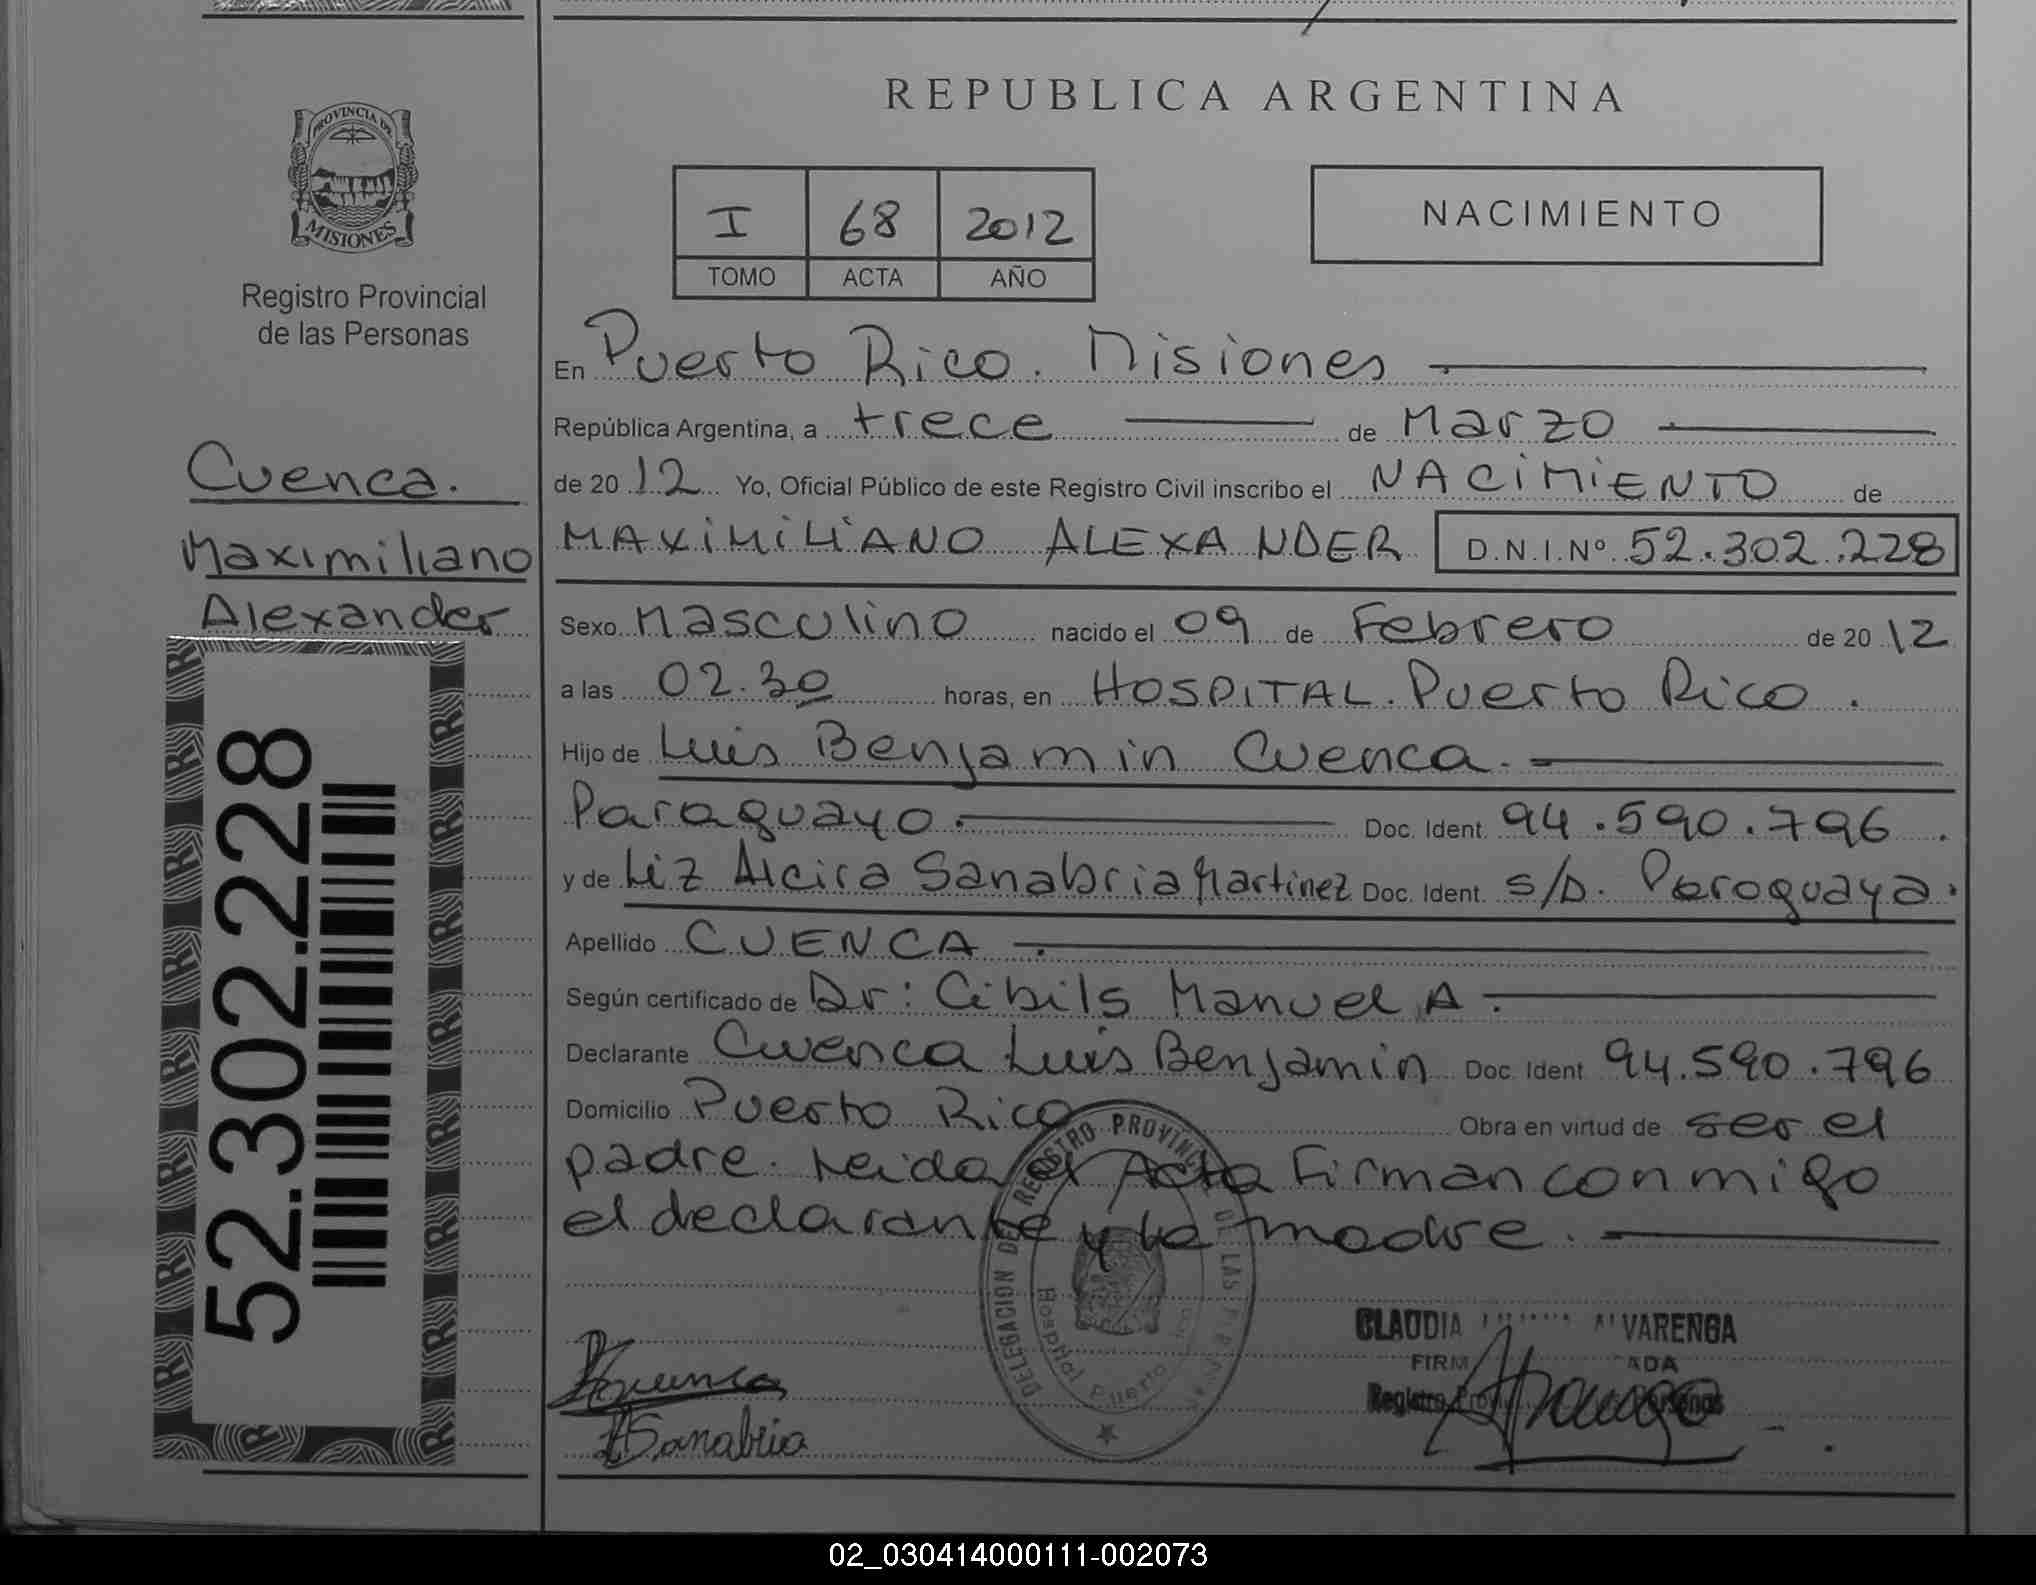 REPUBLICA ARGENTINA
PROVINCIA DE
MISIONES
Registro Provincial
de las Personas
I 68 2012
TOMO ACTA AÑO
NACIMIENTO
Cuenca.
Maximiliano
Alexander
52.302.228
En Puerto Rico. Misiones
República Argentina, a trece de Marzo
de 2012 Yo, Oficial Público de este Registro Civil inscribo el NACIMIENTO de
MAXIMILIANO ALEXANDER D.N.I.Nº 52.302.228
Sexo Masculino nacido el 09 de Febrero de 2012
a las 02.30 horas, en HOSPITAL. Puerto Rico.
Hijo de Luis Benjamin Cuenca.
Paraguayo. Doc. Ident. 94.590.796.
y de Liz Alcira Sanabria Martinez Doc. Ident. s/D. Paraguaya.
Apellido CUENCA.
Según certificado de Dr: Cibils Manuel A.
Declarante Cuenca Luis Benjamin Doc. Ident 94.590.796
Domicilio Puerto Rico Obra en virtud de ser el
padre. Leida el Acta Firman conmigo
el declarante y la madre.
DELEGACION DEL REGISTRO PROVINCIAL DE LAS PERSONAS
Hospital Puerto Rico
CLAUDIA ALVARENGA
Cuenca
Sanabria
02_030414000111-002073